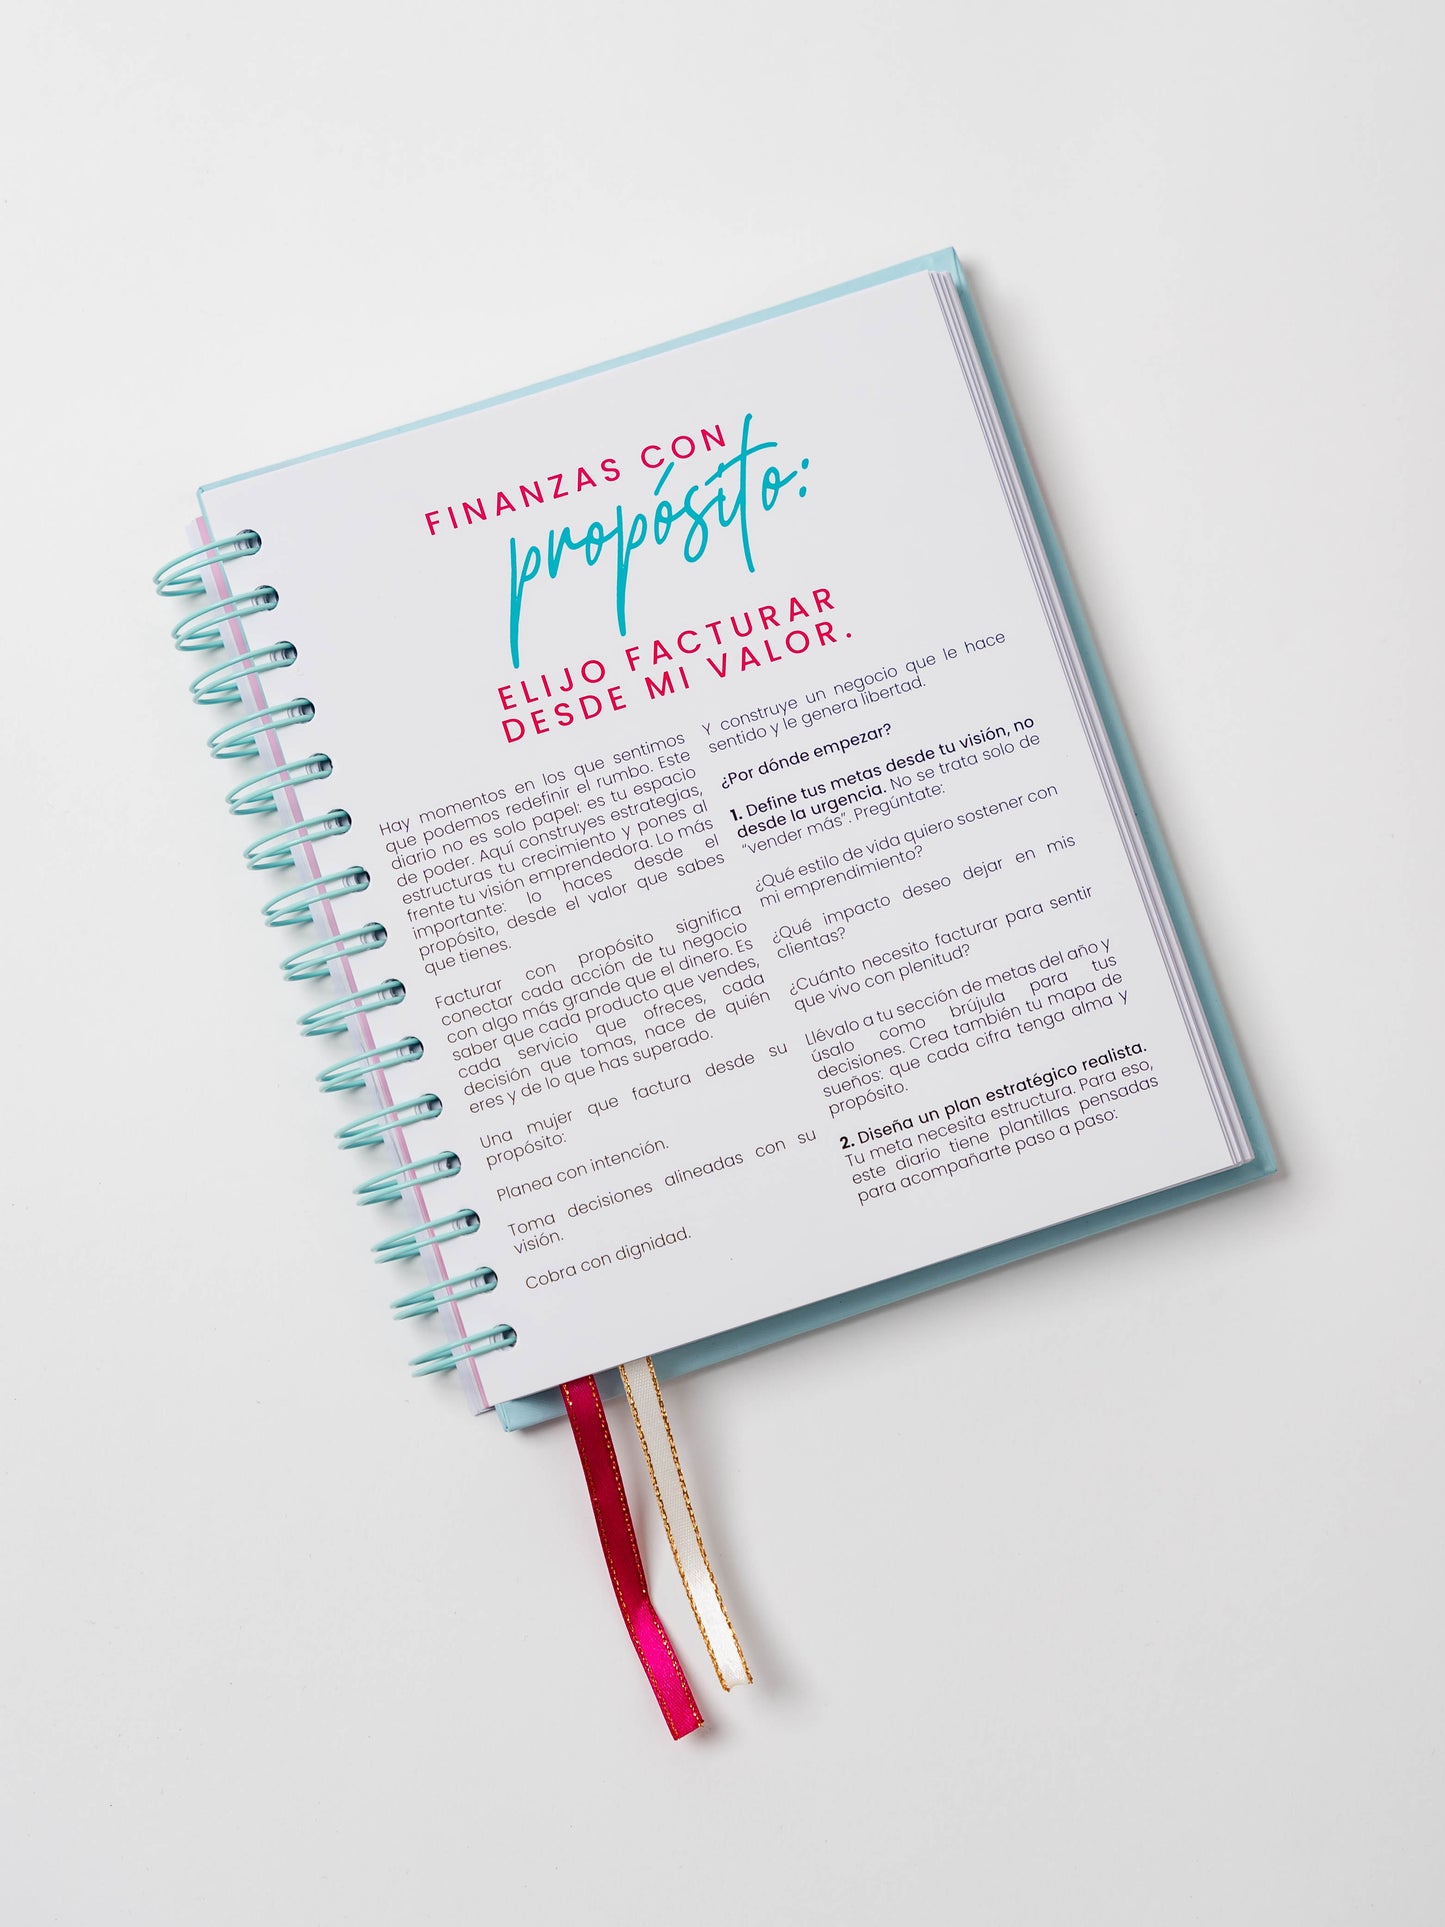 FINANZAS CON
propósito:
ELIJO FACTURAR
DESDE MI VALOR.
Hay momentos en los que sentimos
que podemos redefinir el rumbo. Este
diario no es solo papel: es tu espacio
de poder. Aquí construyes estrategias,
estructuras tu crecimiento y pones al
frente tu visión emprendedora. Lo más
importante: lo haces desde el
propósito, desde el valor que sabes
que tienes.
Facturar con propósito significa
conectar cada acción de tu negocio
con algo más grande que el dinero. Es
saber que cada producto que vendes,
cada servicio que ofreces, cada
decisión que tomas, nace de quién
eres y de lo que has superado.
Una mujer que factura desde su
propósito:
Planea con intención.
Toma decisiones alineadas con su
visión.
Cobra con dignidad.
Y construye un negocio que le hace
sentido y le genera libertad.
¿Por dónde empezar?
1. Define tus metas desde tu visión, no
desde la urgencia. No se trata solo de
“vender más”. Pregúntate:
¿Qué estilo de vida quiero sostener con
mi emprendimiento?
¿Qué impacto deseo dejar en mis
clientas?
¿Cuánto necesito facturar para sentir
que vivo con plenitud?
Llévalo a tu sección de metas del año y
úsalo como brújula para tus
decisiones. Crea también tu mapa de
sueños: que cada cifra tenga alma y
propósito.
2. Diseña un plan estratégico realista.
Tu meta necesita estructura. Para eso,
este diario tiene plantillas pensadas
para acompañarte paso a paso: